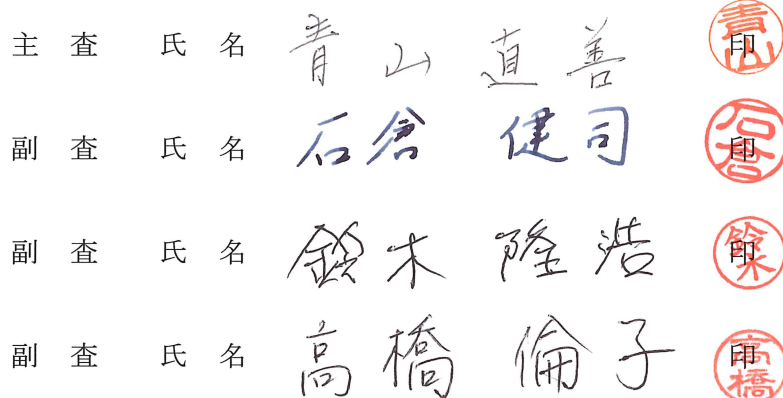 主 査 氏 名 青山 直善 印 青山
副 査 氏 名 石倉 健司 印 石倉
副 査 氏 名 鈴木 隆浩 印 鈴木
副 査 氏 名 高橋 倫子 印 高橋